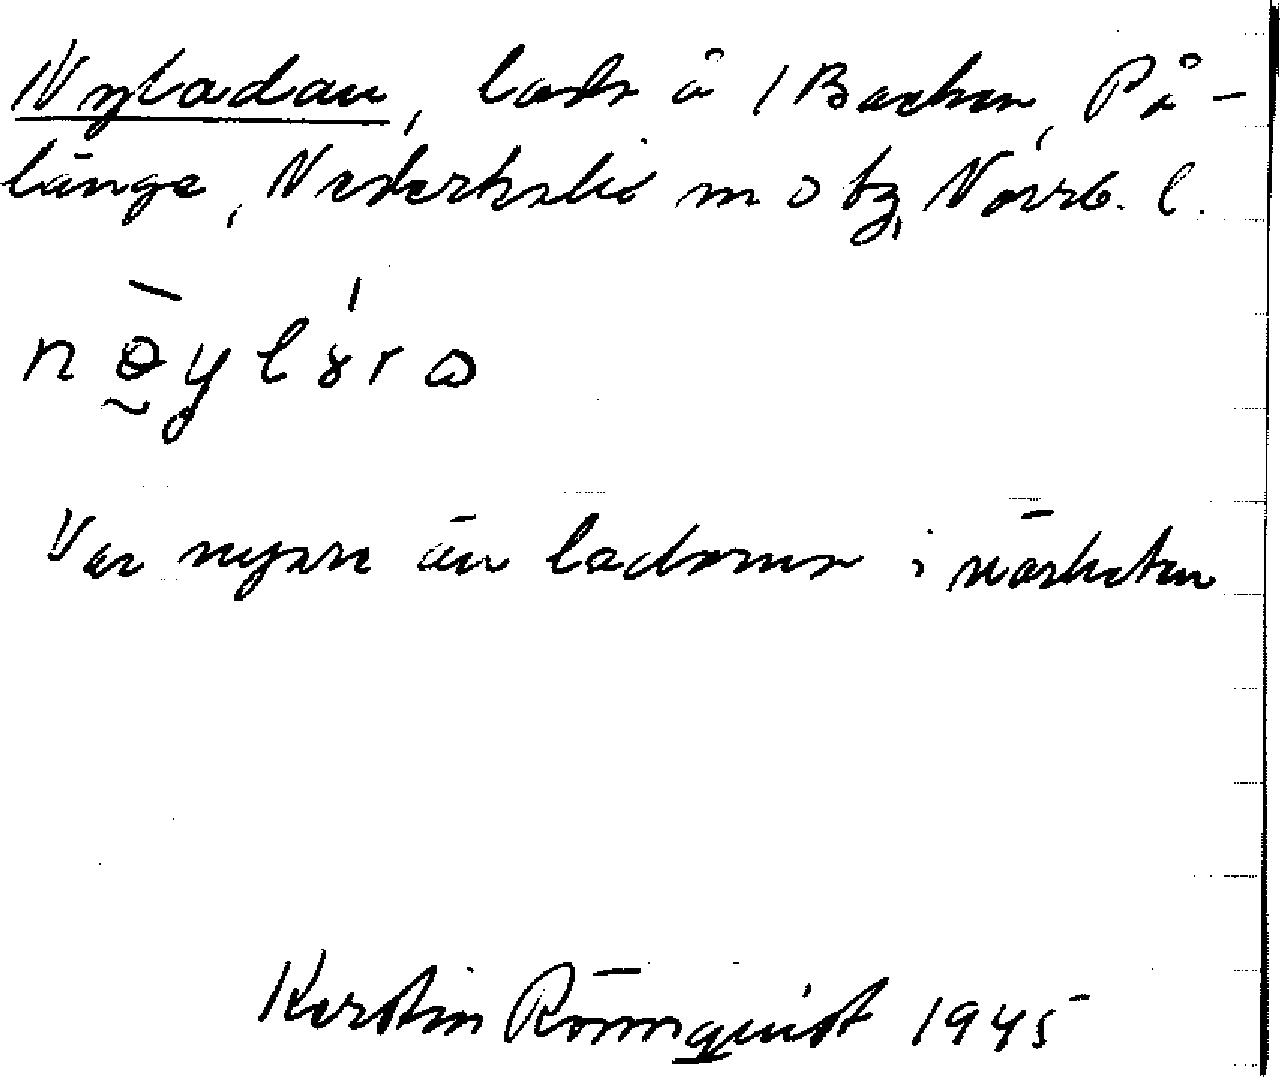 Nyladan, lada å 1 Backen, På-
länge, Nederkalix m o tg, Norrb. l.
Var nyare än ladorna i närheten
Kerstin Rönnquist 1945